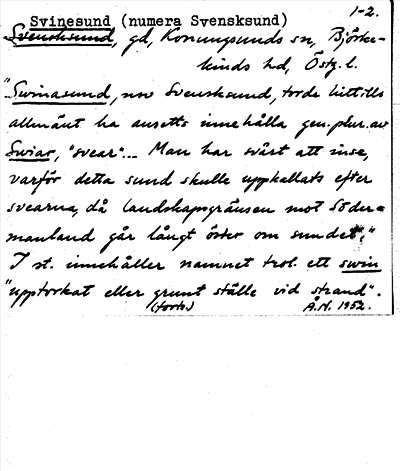 Svinesund (numera Svensksund) 1-2.
Svensksund, gd, Konungsunds sn, Björke-
kinds hd, Östg. l.
"Swinasund, nuv Svensksund, torde hittills
allmänt ha ansetts innehålla gen. plur. av
Swiar, "svear"... Man har svårt att inse,
varför detta sund skulle uppkallats efter
svearna, då landskapsgränsen mot Söder-
manland går långt öster om sundet."
I st. innehåller namnet trol. ett swin
"upptorkat eller grunt ställe vid strand".
(forts.) Å.N. 1952.